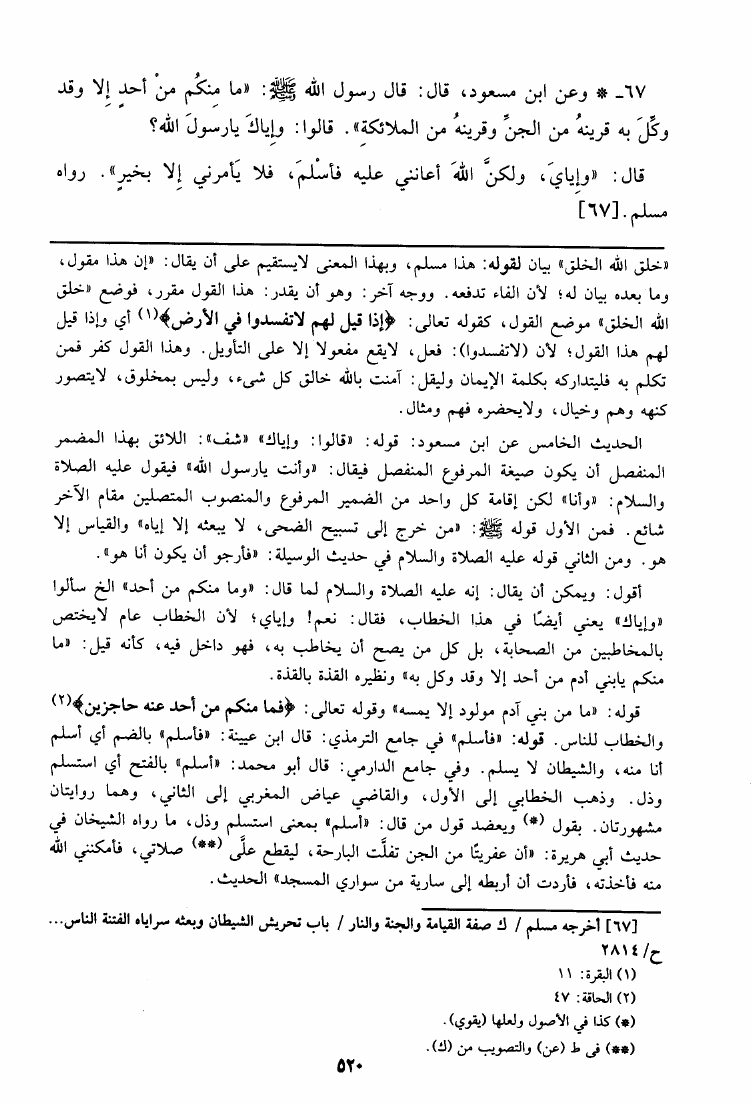 ٦٧ـ * وعن ابن مسعود، قال: قال رسول الله ﷺ: «ما مِنكُم منْ أحدٍ إِلا وقد
وكِّلَ به قرينهُ من الجنِّ وقرينهُ من الملائكةِ». قالوا: وإِياكَ يارسولَ الله؟
قال: «وإِيايَ، ولكنَّ اللهَ أعانني عليه فأسْلمَ، فلا يَأمرني إِلا بخيرٍ». رواه
مسلم.[٦٧]
«خلق الله الخلق» بيان لقوله: هذا مسلم، وبهذا المعنى لايستقيم على أن يقال: «إن هذا مقول،
وما بعده بيان له؛ لأن الفاء تدفعه. ووجه آخر: وهو أن يقدر: هذا القول مقرر، فوضع «خلق
الله الخلق» موضع القول، كقوله تعالى: ﴿إذا قيل لهم لاتفسدوا في الأرض﴾(١) أي وإذا قيل
لهم هذا القول؛ لأن (لاتفسدوا): فعل، لايقع مفعولا إلا على التأويل. وهذا القول كفر فمن
تكلم به فليتداركه بكلمة الإيمان وليقل: آمنت بالله خالق كل شىء، وليس بمخلوق، لايتصور
كنهه وهم وخيال، ولايحضره فهم ومثال.
الحديث الخامس عن ابن مسعود: قوله: «قالوا: وإياك» «شف»: اللائق بهذا المضمر
المنفصل أن يكون صيغة المرفوع المنفصل فيقال: «وأنت يارسول الله» فيقول عليه الصلاة
والسلام: «وأنا» لكن إقامة كل واحد من الضمير المرفوع والمنصوب المتصلين مقام الآخر
شائع. فمن الأول قوله ﷺ: «من خرج إلى تسبيح الضحى، لا يبعثه إلا إياه» والقياس إلا
هو. ومن الثاني قوله عليه الصلاة والسلام في حديث الوسيلة: «فأرجو أن يكون أنا هو».
أقول: ويمكن أن يقال: إنه عليه الصلاة والسلام لما قال: «وما منكم من أحد» الخ سألوا
«وإياك» يعني أيضًا في هذا الخطاب، فقال: نعم! وإياي؛ لأن الخطاب عام لايختص
بالمخاطبين من الصحابة، بل كل من يصح أن يخاطب به، فهو داخل فيه، كأنه قيل: «ما
منكم يابني أدم من أحد إلا وقد وكل به» ونظيره القذة بالقذة.
قوله: «ما من بني آدم مولود إلا يمسه» وقوله تعالى: ﴿فما منكم من أحد عنه حاجزين﴾(٢)
والخطاب للناس. قوله: «فأسلم» في جامع الترمذي: قال ابن عيينة: «فأسلم» بالضم أي أسلم
أنا منه، والشيطان لا يسلم. وفي جامع الدارمي: قال أبو محمد: «أسلم» بالفتح أي استسلم
وذل. وذهب الخطابي إلى الأول، والقاضي عياض المغربي إلى الثاني، وهما روايتان
مشهورتان. بقول (*) ويعضد قول من قال: «أسلم» بمعنى استسلم وذل، ما رواه الشيخان في
حديث أبي هريرة: «أن عفريتًا من الجن تفلَّت البارحة، ليقطع علَّى (**) صلاتي، فأمكنني الله
منه فأخذته، فأردت أن أربطه إلى سارية من سواري المسجد» الحديث.
[٦٧] أخرجه مسلم / ك صفة القيامة والجنة والنار / باب تحريش الشيطان وبعثه سراياه الفتنة الناس...
ح/ ٢٨١٤
(١) البقرة: ١١
(٢) الحاقة: ٤٧
(*) كذا في الأصول ولعلها (يقوي).
(**) فى ط (عن) والتصويب من (ك).
٥٢٠